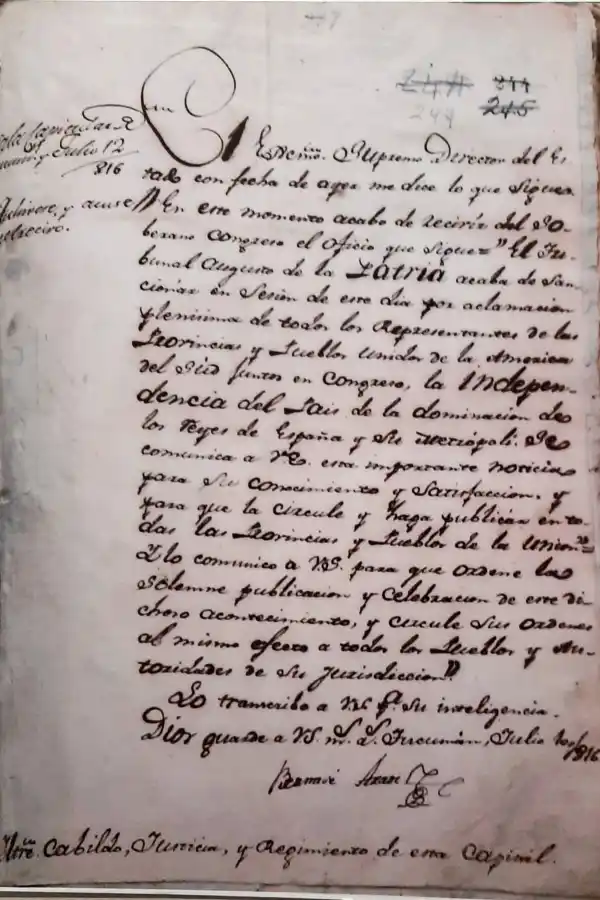 244 244
249 245
Julio 12
816
Archivese, y acuse
recivo.
El Excmo. Supremo Director del Es-
tado con fecha de ayer me dice lo que sigue=
"En este momento acabo de recivir del So-
berano Congreso el Oficio que sigue=" El Tri-
bunal Augusto de la Patria acaba de San-
cionar en Sesion de este dia por aclamacion
plenisima de todos los Representantes de las
Provincias y Pueblos Unidos de la America
del Sud juntos en Congreso, la Indepen-
dencia del Pais de la dominacion de
los Reyes de España y su Metrópoli. Se
comunica a V.E. esta importante noticia
para su conocimiento y Satisfaccion, y
para que la circule y haga publicar en to-
das las Provincias y Pueblos de la Union="
Y lo comunico a V.S. para que ordene la
Solemne publicacion y Celebracion de este di-
choso acontecimiento, y circule sus ordenes
al mismo efecto a todos los Pueblos y Au-
toridades de su Jurisdiccion."
Lo transcribo a V.S. pa. su inteligencia.
Dios guarde a V.S. m. a. Tucumán, Julio 816
Bernavé Araoz
Iltre. Cabildo, Justicia, y Regimiento de esta Capital.